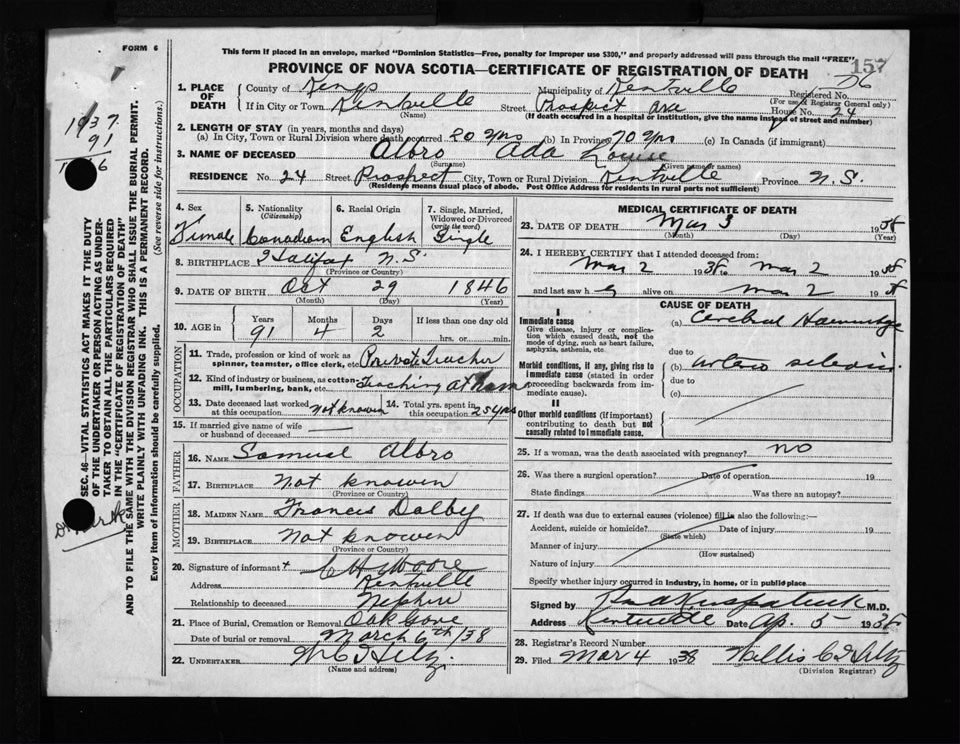 FORM 6
This form if placed in an envelope, marked "Dominion Statistics—Free, penalty for improper use $300," and properly addressed will pass through the mail "FREE"
157
PROVINCE OF NOVA SCOTIA—CERTIFICATE OF REGISTRATION OF DEATH
1. PLACE OF DEATH
County of Kings Municipality of Kentville Registered No.
(For use of Registrar General only)
If in City or Town Kentville Street Prospect ave House No. 24
(Name) (If death occurred in a hospital or institution, give the name instead of street and number)
2. LENGTH OF STAY (in years, months and days)
(a) In City, Town or Rural Division where death occurred 20 yrs (b) In Province 70 yrs (c) In Canada (if immigrant)
3. NAME OF DECEASED Albro Ada Louise
(Surname) (Given name or names)
RESIDENCE No. 24 Street Prospect City, Town or Rural Division Kentville Province N.S.
(Residence means usual place of abode. Post Office Address for residents in rural parts not sufficient)
4. Sex Female
5. Nationality (Citizenship) Canadian
6. Racial Origin English
7. Single, Married, Widowed or Divorced (write the word) Single
8. BIRTHPLACE Halifax N.S.
(Province or Country)
9. DATE OF BIRTH Oct 29 1846
(Month) (Day) (Year)
10. AGE in Years Months Days If less than one day old
91 4 2 hrs. or min.
OCCUPATION
11. Trade, profession or kind of work as spinner, teamster, office clerk, etc. Private Teacher
12. Kind of industry or business, as cotton mill, lumbering, bank, etc. Teaching at Home
13. Date deceased last worked at this occupation not knowen
14. Total yrs. spent in this occupation 25 yrs
15. If married give name of wife or husband of deceased
FATHER
16. NAME Samuel Albro
17. BIRTHPLACE Not knowen
(Province or Country)
MOTHER
18. MAIDEN NAME Frances Dalbey
19. BIRTHPLACE Not knowen
(Province or Country)
20. Signature of informant C H Moore
Address Kentville
Relationship to deceased Nephew
21. Place of Burial, Cremation or Removal Oak Gove
Date of burial or removal March 6th/38
22. UNDERTAKER
(Name and address)
MEDICAL CERTIFICATE OF DEATH
23. DATE OF DEATH Mar 3 1938
(Month) (Day) (Year)
24. I HEREBY CERTIFY that I attended deceased from:
Mar 2 1938 to Mar 2 1938
and last saw h alive on Mar 2 19
CAUSE OF DEATH
I
Immediate cause
Give disease, injury or complication which caused death, not the mode of dying, such as heart failure, asphyxia, asthenia, etc.
(a) Cerebral
due to
Morbid conditions, if any, giving rise to immediate cause (stated in order proceeding backwards from immediate cause).
(b)
due to
(c)
II
Other morbid conditions (if important) contributing to death but not causally related to immediate cause.
25. If a woman, was the death associated with pregnancy? no
26. Was there a surgical operation? Date of operation 19
State findings Was there an autopsy?
27. If death was due to external causes (violence) fill in also the following:—
Accident, suicide or homicide? Date of injury 19
(State which)
Manner of injury
(How sustained)
Nature of injury
Specify whether injury occurred in industry, in home, or in public place
Signed by M.D.
Address Kentville Date Ap. 5 - 1938
28. Registrar's Record Number
29. Filed Mar 4 1938
(Division Registrar)
SEC. 46—VITAL STATISTICS ACT MAKES IT THE DUTY
OF THE UNDERTAKER OR PERSON ACTING AS UNDER-
TAKER TO OBTAIN ALL THE PARTICULARS REQUIRED
IN THE "CERTIFICATE OF REGISTRATION OF DEATH"
AND TO FILE THE SAME WITH THE DIVISION REGISTRAR WHO SHALL ISSUE THE BURIAL PERMIT.
WRITE PLAINLY WITH UNFADING INK. THIS IS A PERMANENT RECORD.
Every item of information should be carefully supplied. (See reverse side for instructions.)
1937
91